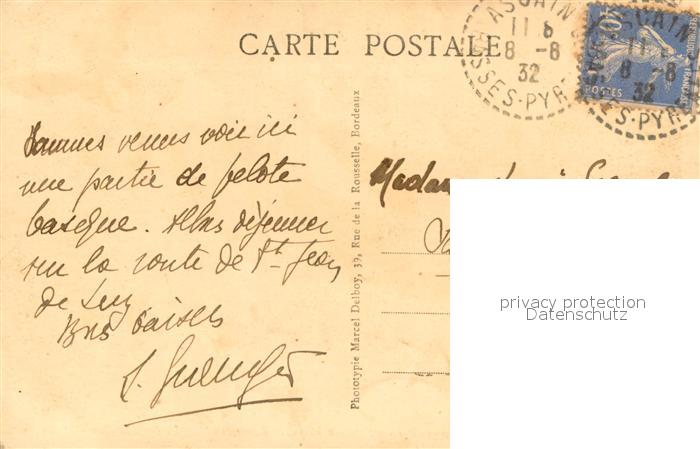 CARTE POSTALE
ASCAIN
11 8
8 -8
32
SSES-PYR
40
POSTES
ASCAIN
11
8 -8
32
ES-PYR
Sommes venus voir ici
une partie de pelote
basque. Allons déjeuner
sur la route de St. Jean
de Luz
Bons baisers
Phototypie Marcel Delboy, 39, Rue de la Rousselle, Bordeaux
Madame
privacy protection
Datenschutz